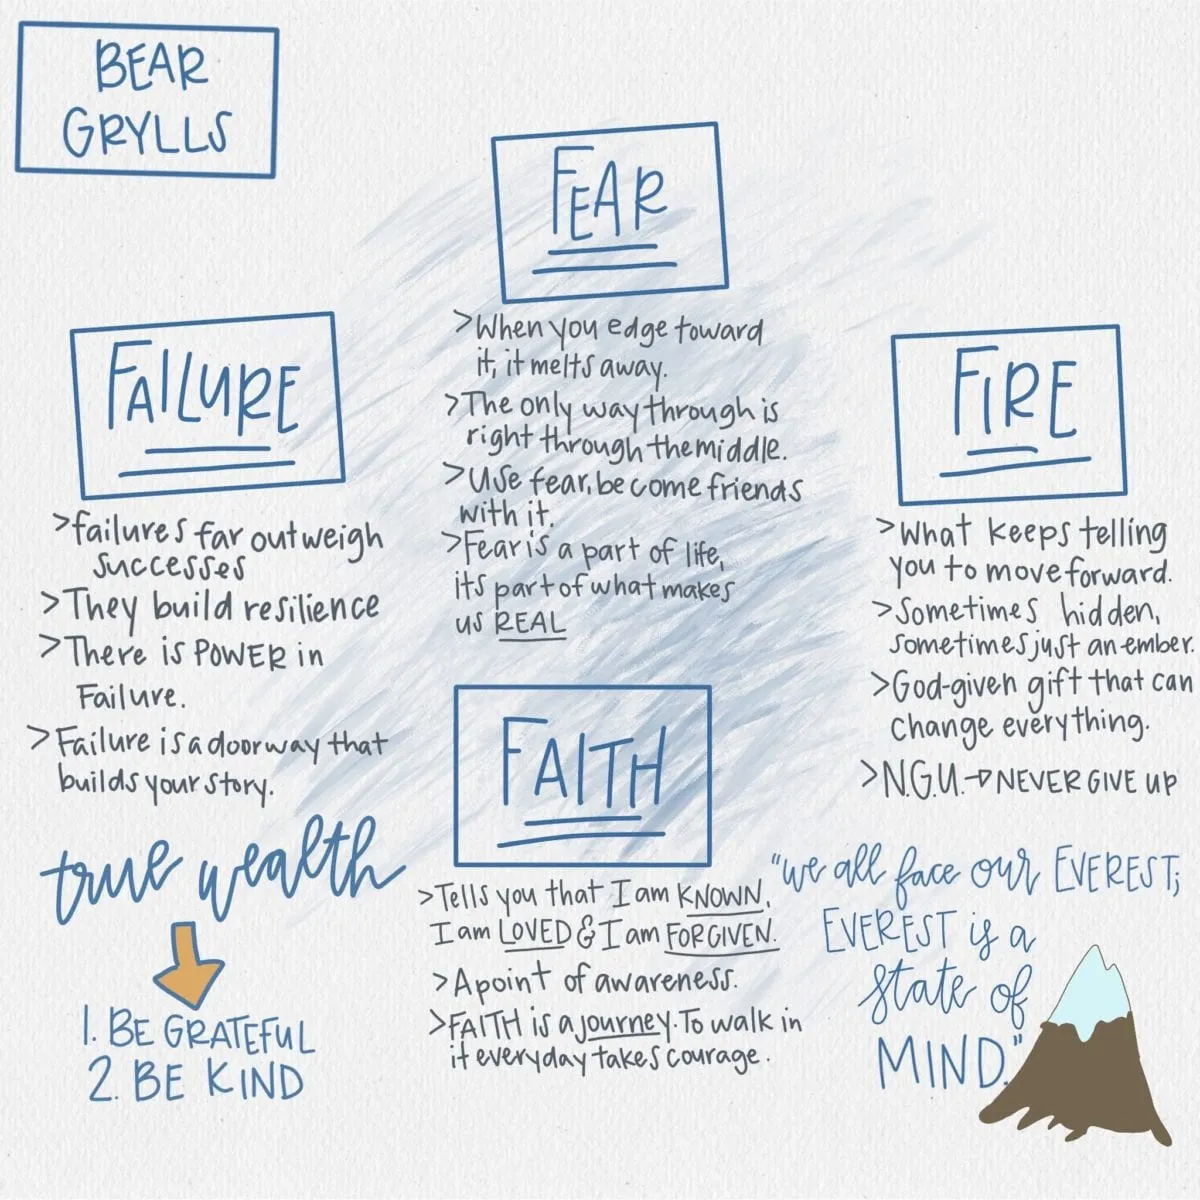 BEAR
GRYLLS
FEAR
>When you edge toward
it, it melts away.
>The only way through is
right through the middle.
>Use fear, become friends
with it.
>Fear is a part of life,
its part of what makes
us REAL
FAILURE
>failures far outweigh
successes
>They build resilience
>There is POWER in
Failure.
>Failure is a doorway that
builds your story.
FIRE
>What keeps telling
you to move forward.
>Sometimes hidden,
sometimes just an ember.
>God-given gift that can
change everything.
>N.G.U.→NEVER GIVE UP
FAITH
>Tells you that I am KNOWN,
I am LOVED & I am FORGIVEN.
>A point of awareness.
>FAITH is a journey. To walk in
it everyday takes courage.
true wealth
1. BE GRATEFUL
2. BE KIND
"we all face our EVEREST;
EVEREST is a
state of
MIND."